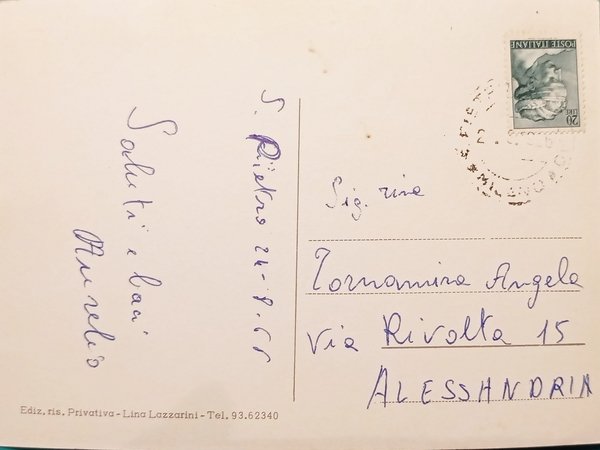 S. Pietro 24-8.66
Saluti e baci
Aurelio
POSTE ITALIANE
LIRE 20
MILANO
Sig.rina
Tornamira Angela
Via Rivolta 15
ALESSANDRIA
Ediz. ris. Privativa - Lina Lazzarini - Tel. 93.62340